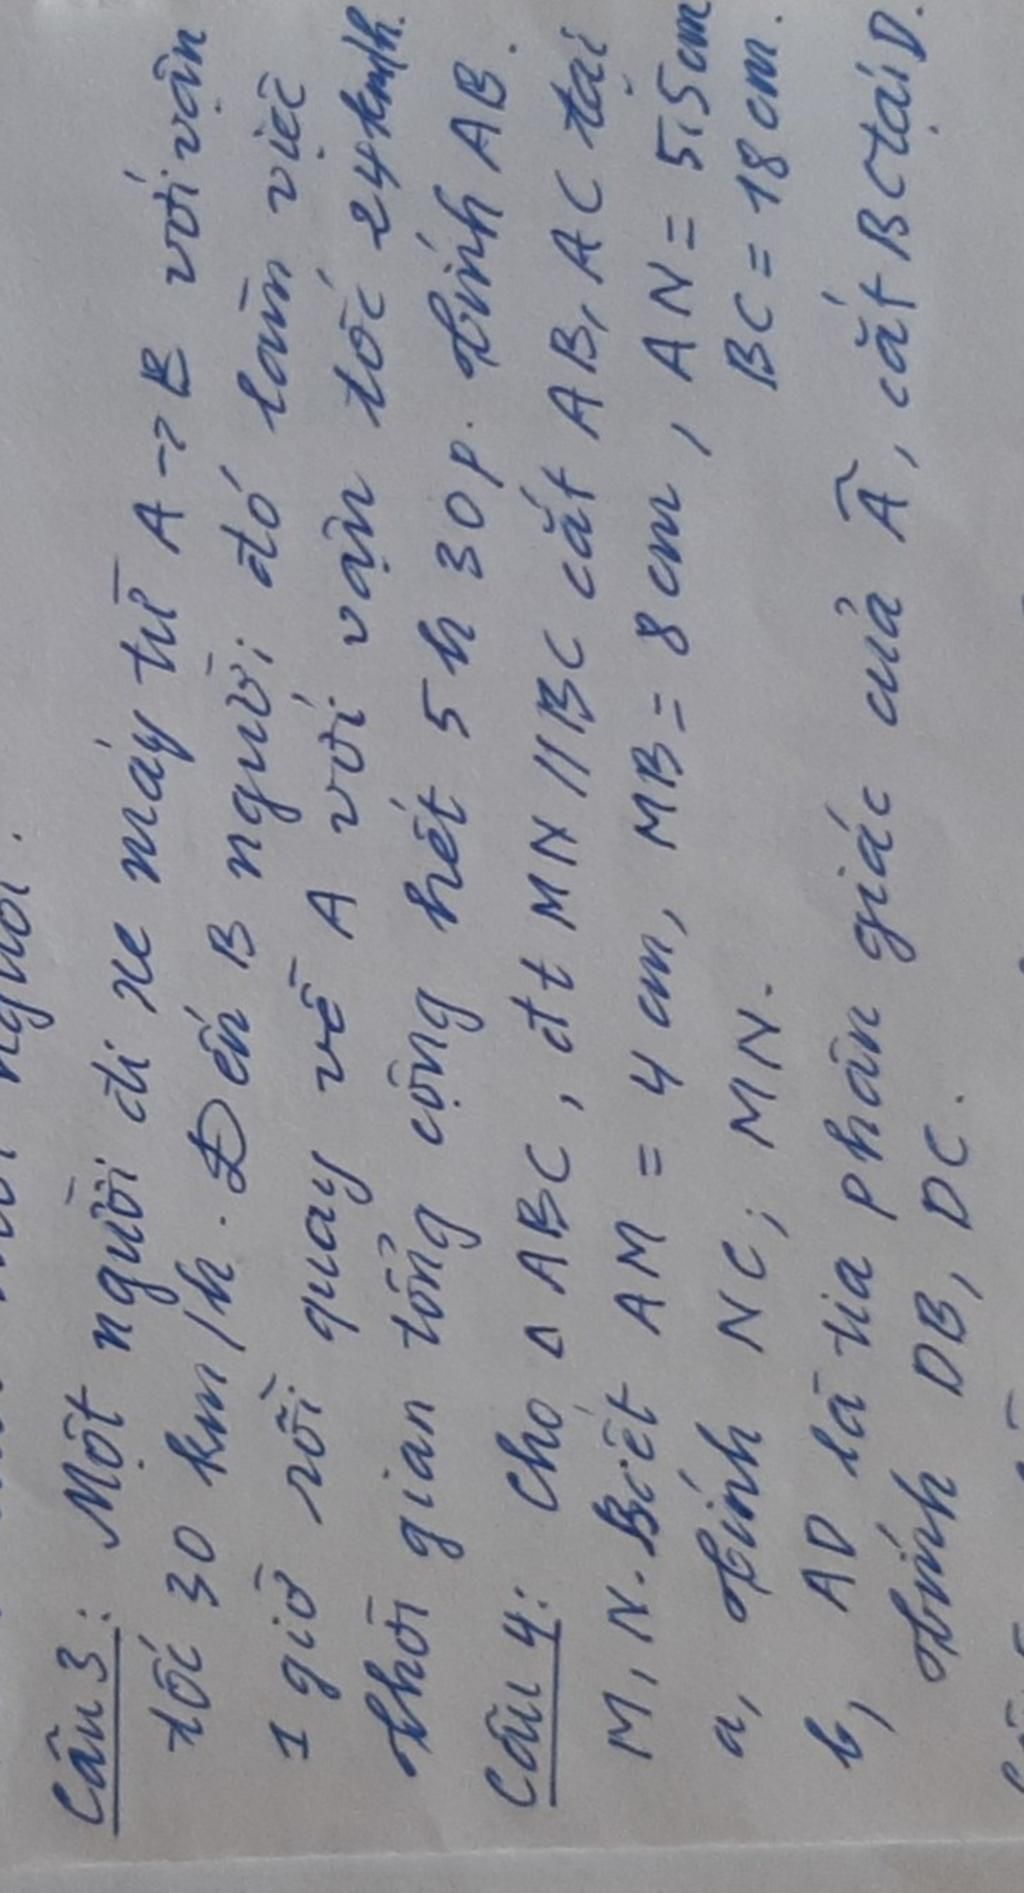 Câu 3: Một người đi xe máy từ A → B với vận
tốc 30 km/h. Đến B người đó làm việc
1 giờ rồi quay về A với vận tốc 24km/h.
Thời gian tổng cộng hết 5h 30p. Tính AB.
Câu 4: Cho Δ ABC, đt MN // BC cắt AB, AC tại
M, N. Biết AM = 4 cm, MB = 8 cm, AN = 5,5 cm
BC = 18 cm.
a, Tính NC; MN.
b, AD là tia phân giác của Â, cắt BC tại D.
Tính DB, DC.